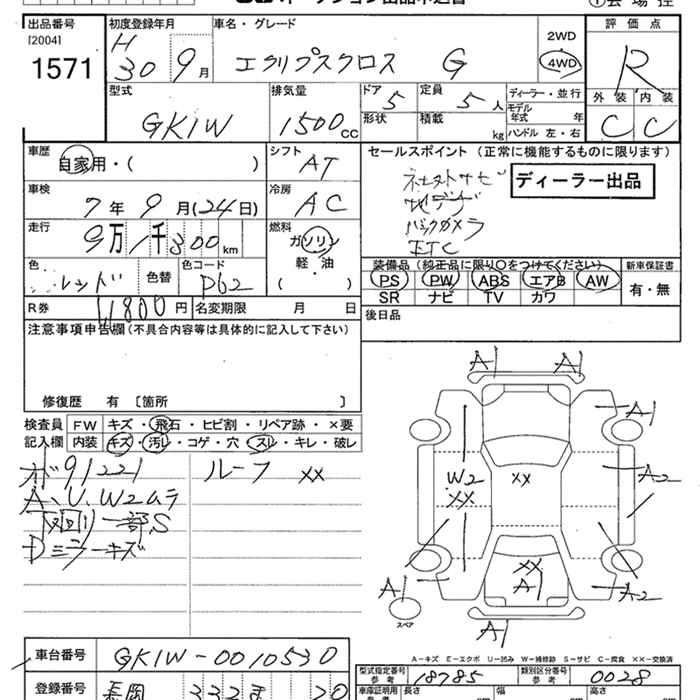 出品番号 初度登録年月 車名・グレード 2WD 評価点
[2004] H
1571 30年 9月 エクリプスクロス G 4WD R
外装 内装
型式 排気量 ドア 5 定員 5人 ディーラー・並行 C C
GK1W 1500cc 形状 積載 kg モデル年式 年
ハンドル 左・右
車歴 シフト セールスポイント (正常に機能するものに限ります)
自家用・( ) AT
車検 冷房 ディーラー出品
7年 9月(24日) AC 地デジ
走行 燃料 バックカメラ
9万1千300km ガソリン ETC
軽・油
色 色替 色コード ( ) 装備品 (純正品に限り○をつけてください) 新車保証書
レッド P62 PS PW ABS エアB AW 有・無
R券 11800円 名変期限 月 日 SR ナビ TV カワ
注意事項申告欄(不具合内容等は具体的に記入して下さい) 後日品
修復歴 有 〔箇所 〕
検査員 FW キズ・飛石・ヒビ割・リペア跡・×要
記入欄 内装 キズ・汚レ・コゲ・穴・スレ・キレ・破レ
オド91221 ルーフ XX
A、U、W2ムラ
下回り一部S
Dミラーキズ
A1 A1
A1
W2 XX A2
XX
XX
A1 A1 A2
スペア
A1
A-キズ E-エクボ U-凹み W-補修跡 S-サビ C-腐食 XX-交換済
車台番号 GK1W-0010530
型式指定番号 参考 18785 類別区分番号 参考 0028
登録番号 長岡 332 ま 20
車庫証明用 参考 長さ cm 幅 cm 高さ cm